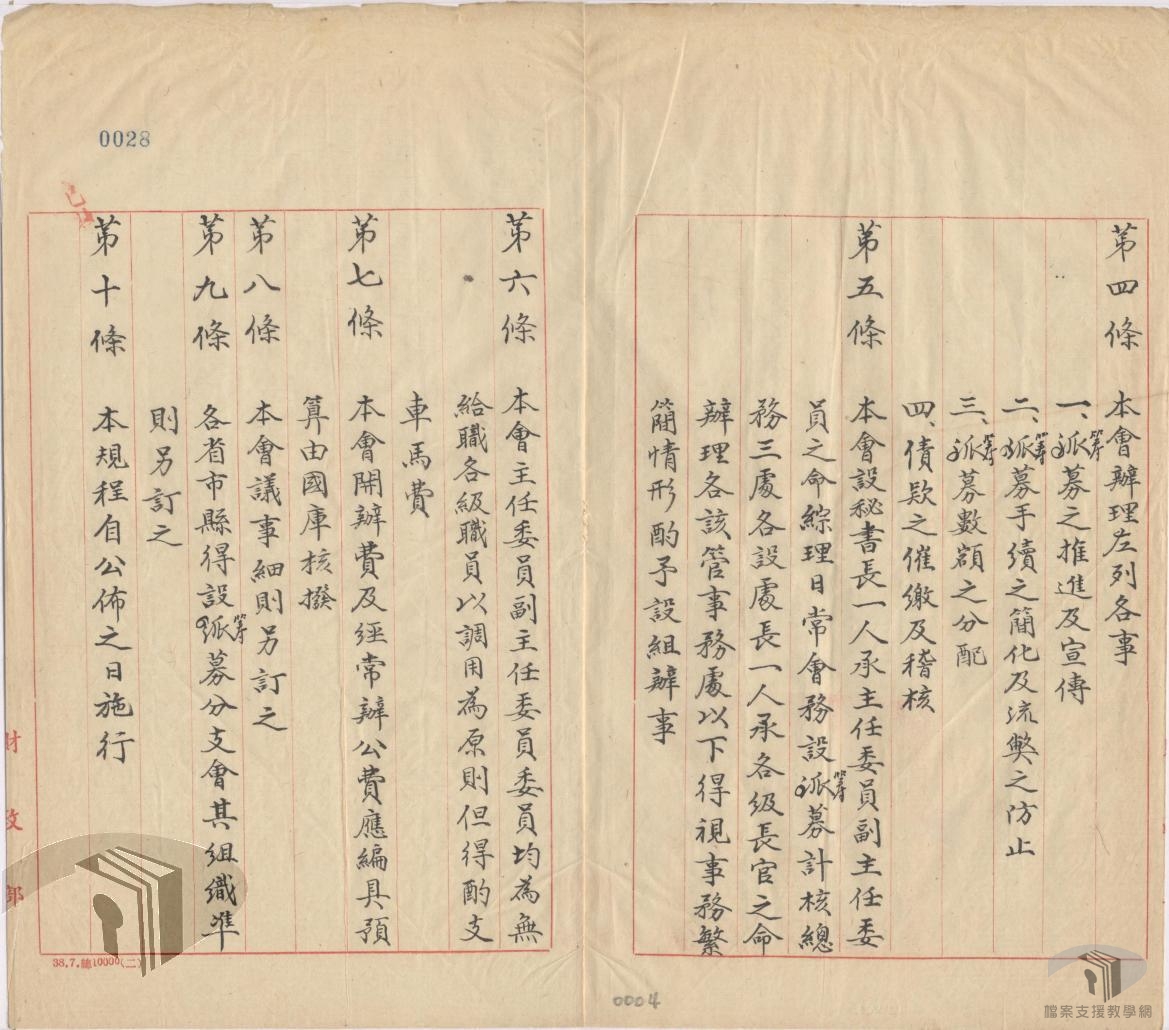 第四條 本會辦理左列各事
一、派籌募之推進及宣傳
二、派籌募手續之簡化及流弊之防止
三、派籌募數額之分配
四、債欵之催繳及稽核
第五條 本會設秘書長一人承主任委員副主任委
員之命綜理日常會務設派籌募計核總
務三處各設處長一人承各級長官之命
辦理各該管事務處以下得視事務繁
簡情形酌予設組辦事
第六條 本會主任委員副主任委員委員均為無
給職各級職員以調用為原則但得酌支
車馬費
第七條 本會開辦費及經常辦公費應編具預
算由國庫核撥
第八條 本會議事細則另訂之
第九條 各省市縣得設派籌募分支會其組織準
則另訂之
第十條 本規程自公佈之日施行
0028
財政部
38.7.總10000(二)
0004
檔案支援教學網